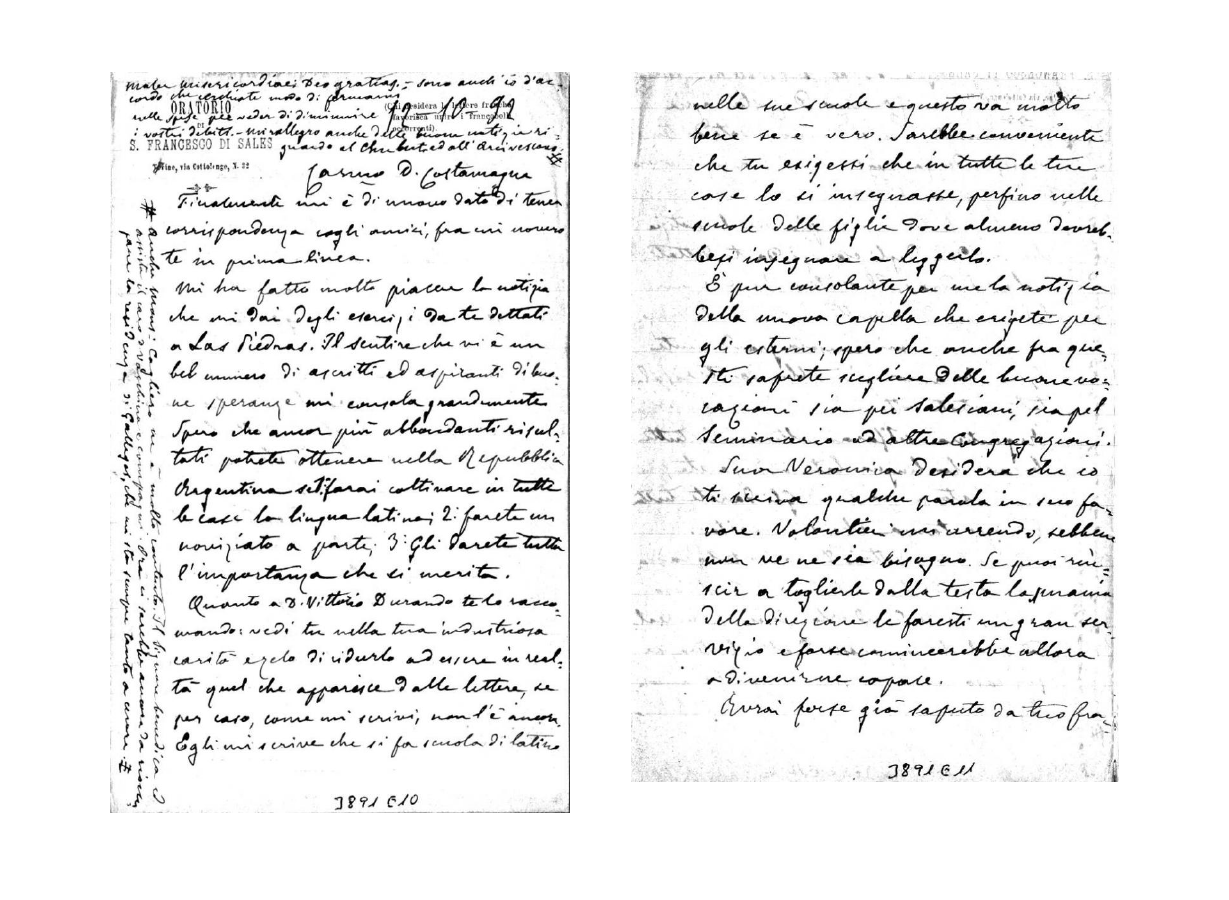 mater misericordiae: Deo gratias.- sono anch'io d'ac-
cordo che cerchiate modo di fermarvi
nelle spese per veder di diminuire
i vostri debiti.- Mi rallegro anche delle buone notizie ri-
guardo al Chubut ed all'Arcivescovo.
ORATORIO
DI
S. FRANCESCO DI SALES
Torino, via Cottolengo, N. 32
(Chi desidera lettere
favorisca
10-92
Carissimo D. Costamagna
Finalmente mi è di nuovo dato di tener
corrispondenza cogli amici, fra cui novero
te in prima linea.
Mi ha fatto molto piacere la notizia
che mi dai degli esercizi da te dettati
a Las Piedras. Il sentire che vi è un
bel numero di ascritti ed aspiranti di buo-
ne speranze mi consola grandemente
Spero che ancor più abbondanti risul-
tati potrete ottenere nella Repubblica
Argentina se 1° farai coltivare in tutte
le case la lingua latina; 2° farete un
noviziato a parte; 3° Gli darete tutta
l'importanza che si merita.
Quanto a D. Vittorio Durando te lo racco-
mando: vedi tu nella tua industriosa
carità e zelo di ridurlo ad essere in real-
tà quel che apparisce dalle lettere, se
per caso, come mi scrivi, non l'è ancor.
Egli mi scrive che si fa scuola di latino
# Anche Mons. Cagliero ne è molto contento. Il Signore benedica ed
assista il caro D. Vacchina e compagni. Ora ci sarebbe ancora da
la residenza di Gallegos, che mi sta sempre tanto a cuore. #
J891 C10
nelle sue scuole e questo va molto
bene se è vero. Sarebbe conveniente
che tu esigessi che in tutte le tue
case lo si insegnasse, perfino nelle
scuole delle figlie dove almeno dovreb-
besi insegnare a leggerlo.
È pur consolante per me la notizia
della nuova capella che erigete per
gli esterni; spero che anche fra que-
sti saprete scegliere delle buone vo-
cazioni sia pei Salesiani, sia pel
Seminario ed altre Congregazioni.
Suor Veronica desidera che io
ti scriva qualche parola in suo fa-
vore. Volontieri mi arrendo, sebbene
non ve ne sia bisogno. Se puoi riu-
scir a toglierle dalla testa la smania
della direzione le faresti un gran ser-
vizio e forse comincerebbe allora
a divenirne capace.
Avrai forse già saputo da tuo fra-
J891 C11